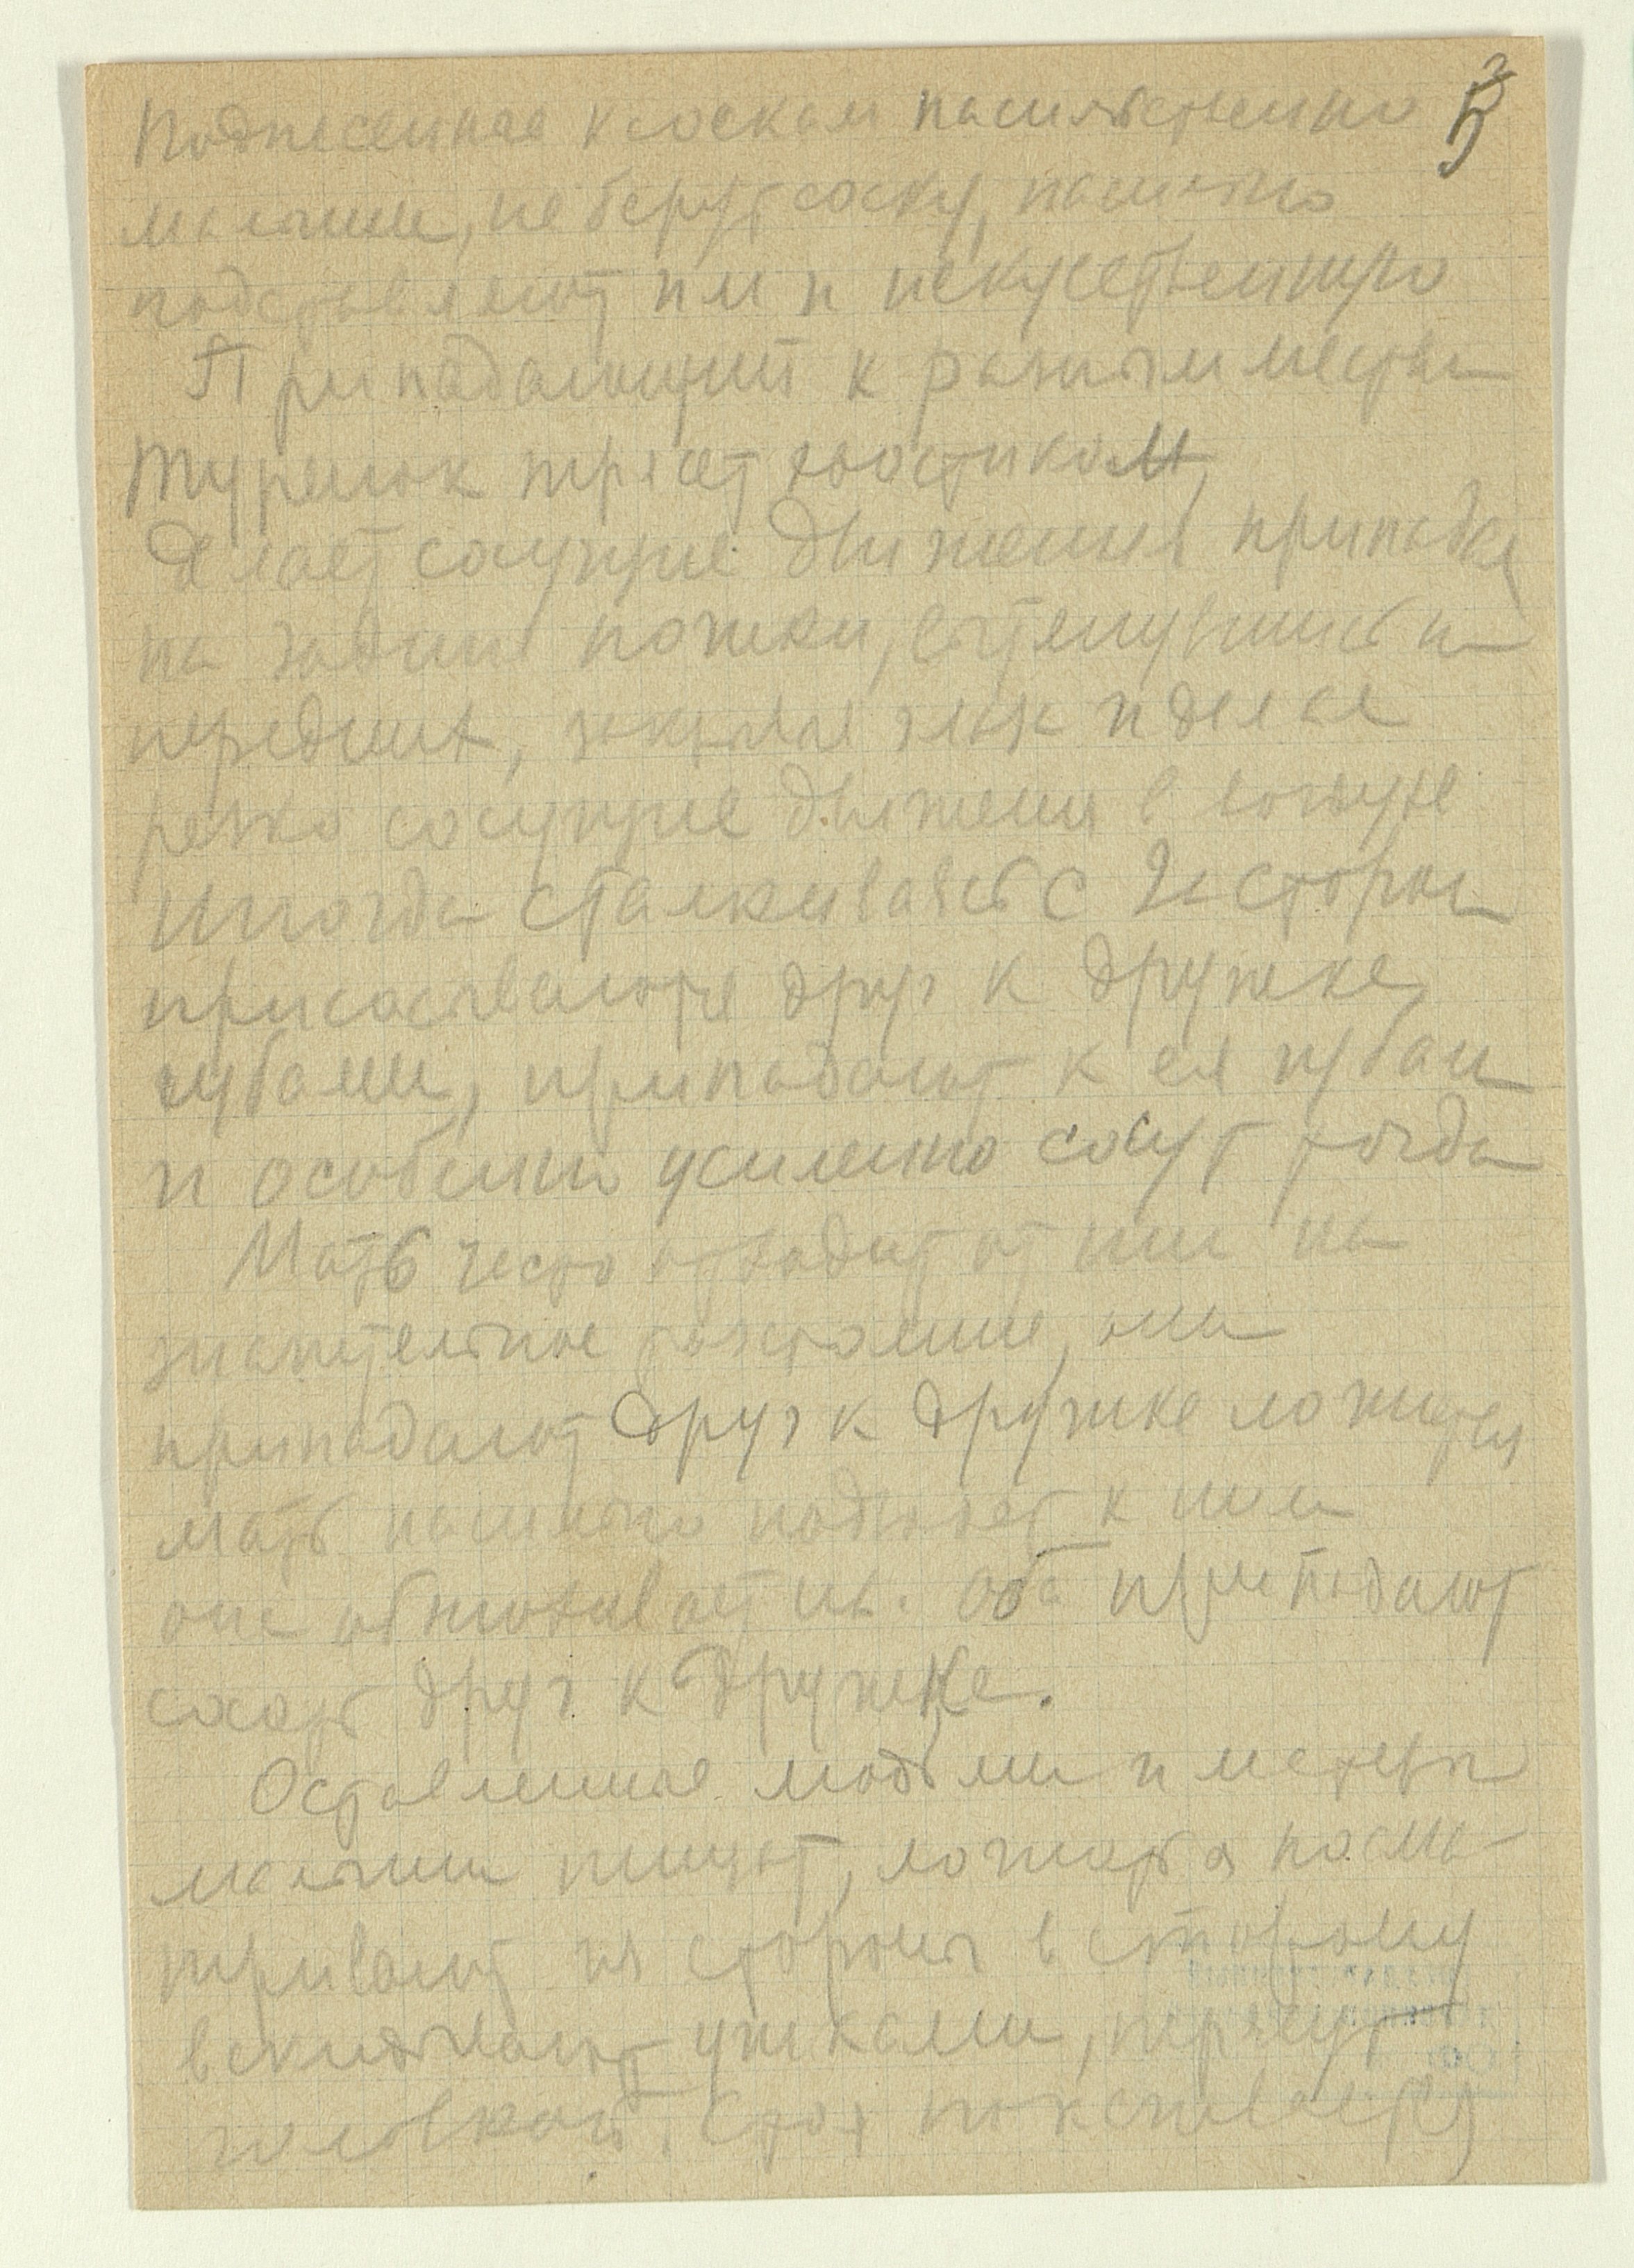 Поднесенные к соскам насильственно
малыши, не берут соску, насильно
подставляют им и искусственную
Припадающий к разным местам
Турёнок трясет хвостиком,
делает сосущие движения припадая
на задние ножки, вытянувшись на
передних, закрывая глаза и делая
резко сосущие движения в воздухе
Иногда сталкиваясь с 2х сторон
присасываются друг к дружке
губами, припадают к ея губам
и особенно усиленно сосут тогда
Мать часто отходит от них на
значительное расстояние, они
припадают друг к дружке ложатся
мать насильно подводят к ним
она обнюхивает их. Оба припадают
сосать друг к дружке.
Оставленные людьми и матерью
малыши пищат, лежат и посма-
тривают из стороны в сторону
вскидывают ушками, трясут
головкой, страх показывает